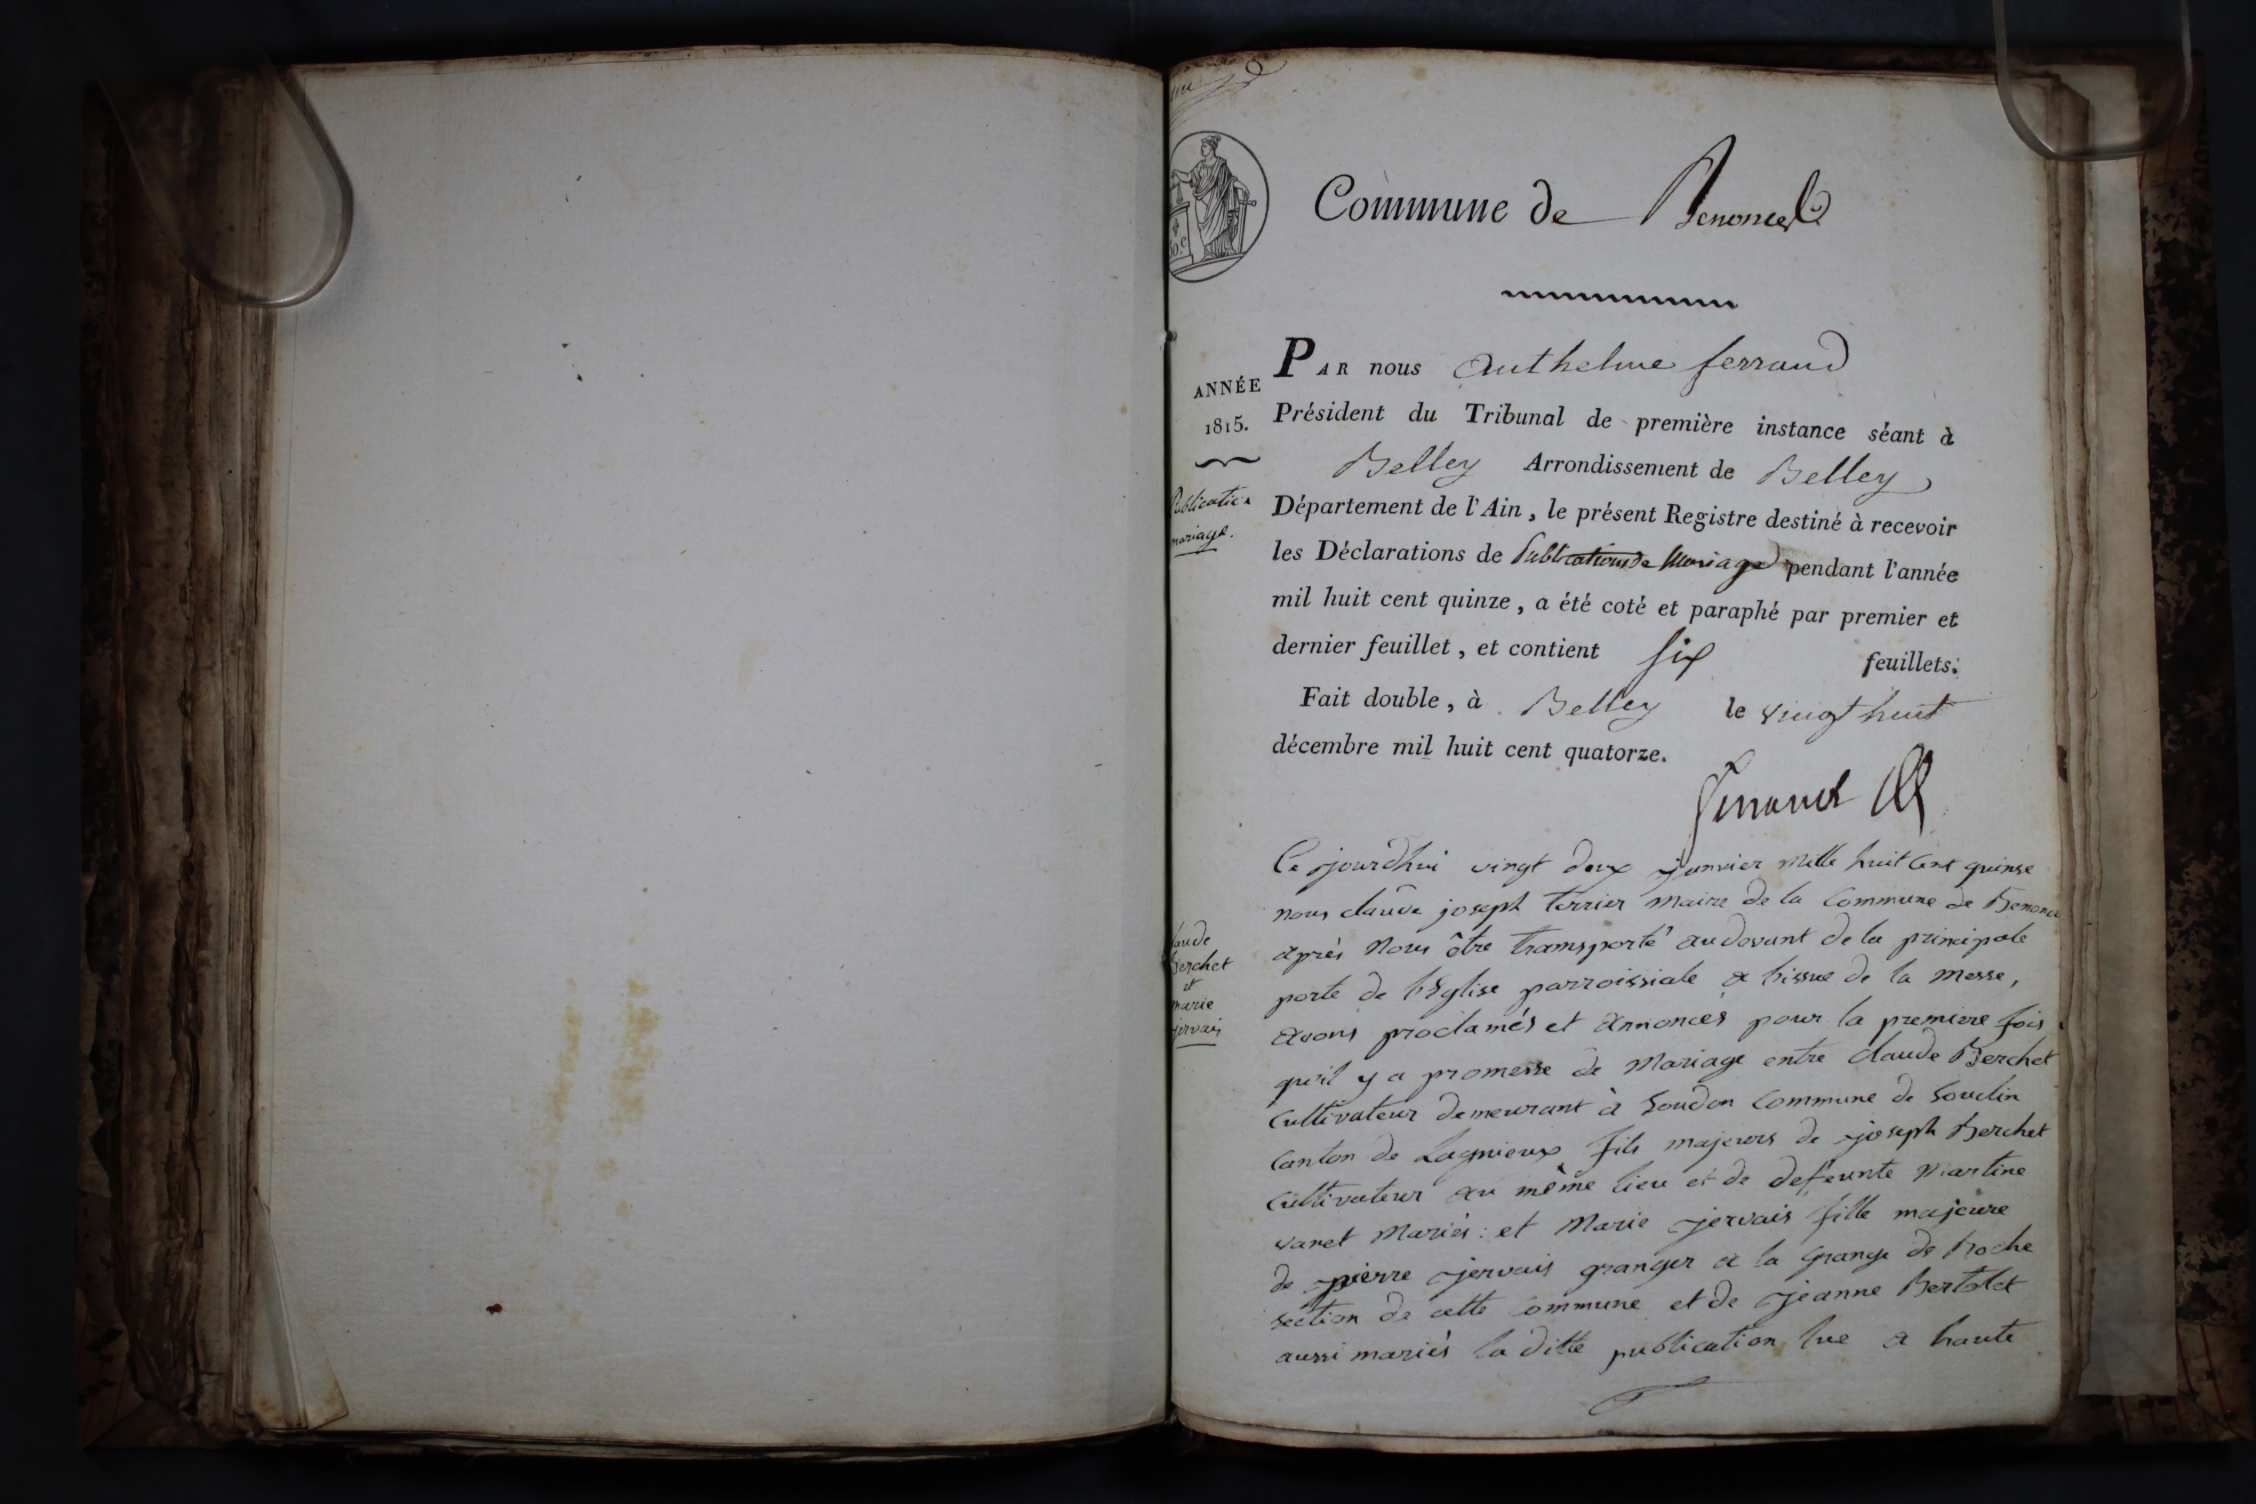 Commune de Benonces
ANNÉE
1815.
Publication
mariage.
PAR nous Anthelme ferrand
Président du Tribunal de première instance séant à
Belley Arrondissement de Belley
Département de l'Ain, le présent Registre destiné à recevoir
les Déclarations de Publications de Mariage pendant l'année
mil huit cent quinze, a été coté et paraphé par premier et
dernier feuillet, et contient six feuillets.
Fait double, à Belley le vingt huit
décembre mil huit cent quatorze.
Ferrand
Cejourdhui vingt deux janvier mille huit cent quinse
nous claude joseph terrier maire de la Commune de Benonce
après Nous être transporté audevant de la principale
porte de l'Eglise parroissiale a lissue de la messe,
avons proclamés et annoncés pour la premiere fois
qu'il y a promesse de Mariage entre claude Berchet
Cultivateur demeurant à Soudon Commune de Souclin
Canton de Lagnieux fils majeurs de joseph Berchet
Cultivateur au même lieu et de defeunte Martine
varet Mariés : et Marie jervais fille majeure
de pierre jervais granger a la grange de Roche
section de cette commune et de jeanne Bertolet
aussi mariés la ditte publication lue a haute
laude
Berchet
et
marie
jervais